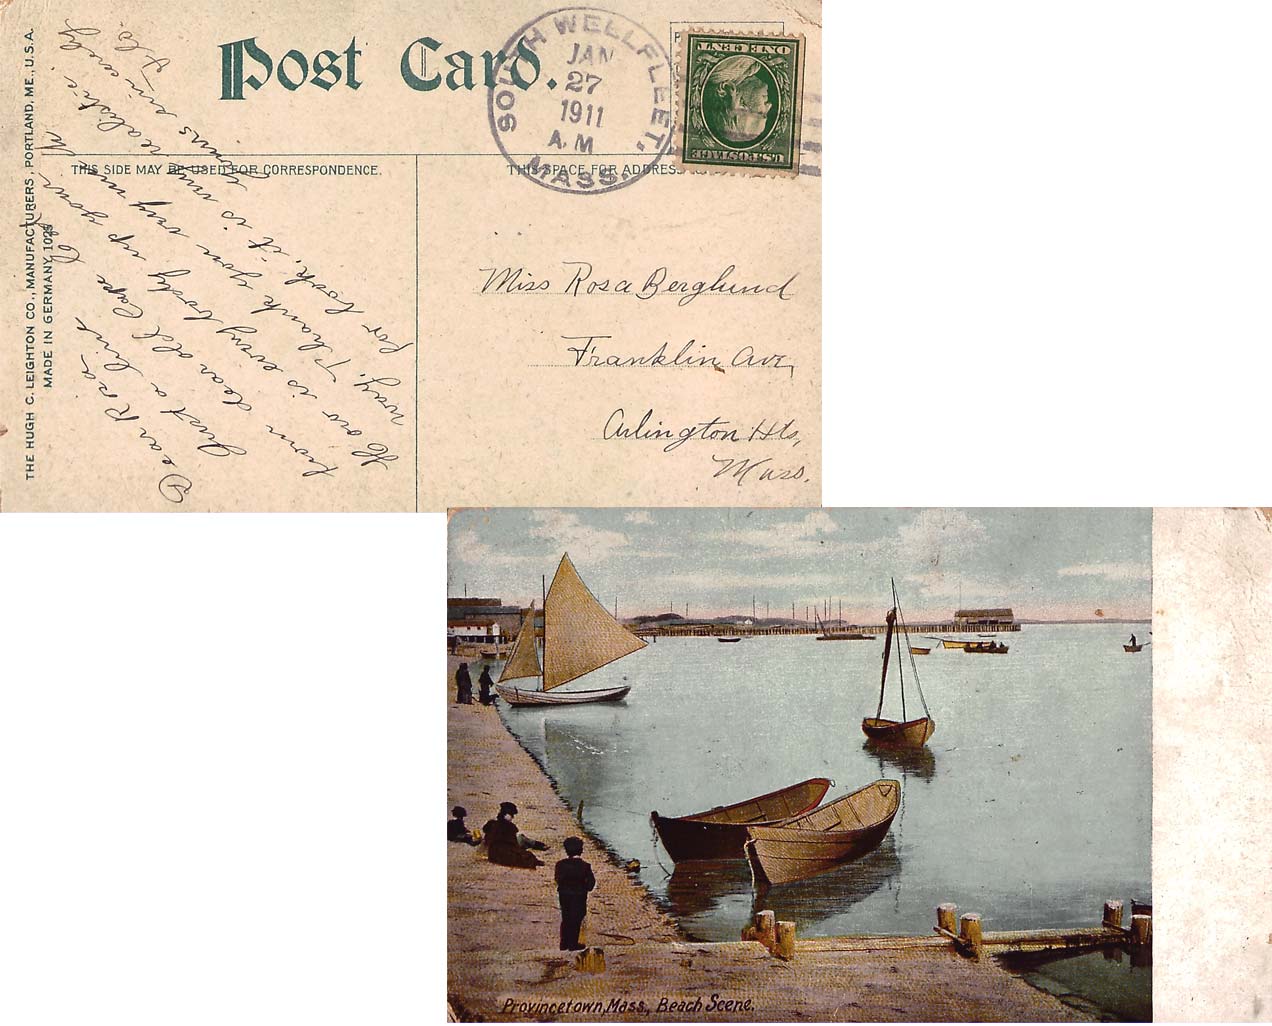 Post Card.
SOUTH WELLFLEET, MASS.
JAN
27
1911
A.M
ONE CENT
U.S. POSTAGE
THIS SIDE MAY BE USED FOR CORRESPONDENCE.
THIS SPACE FOR ADDRESS
THE HUGH C. LEIGHTON CO., MANUFACTURERS, PORTLAND, ME., U.S.A.
MADE IN GERMANY, 1025
Dear Rosa
Just a line
from dear old Cape C.
How is everybody up your
way. Thank you very m
for book, it is very realistic.
Miss Rosa Berglund
Franklin Ave,
Arlington Hts,
Mass.
Provincetown, Mass., Beach Scene.